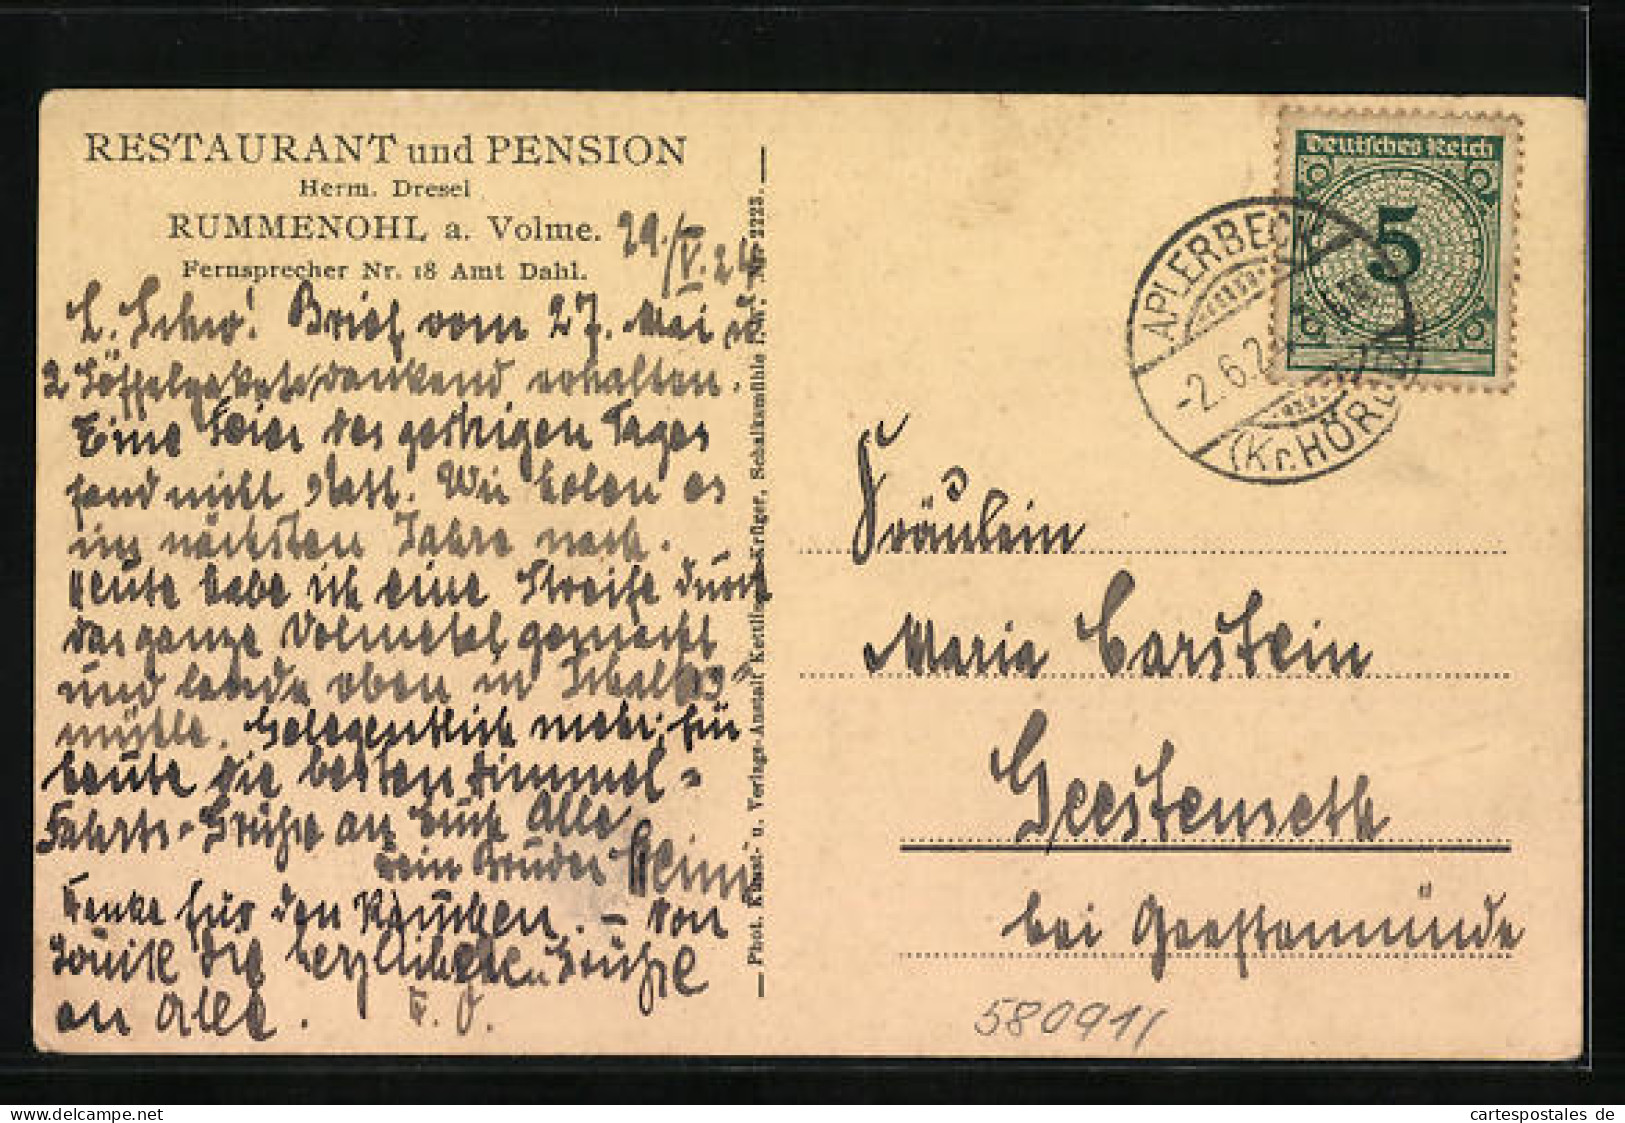 RESTAURANT und PENSION
Herm. Dresel
RUMMENOHL a. Volme.
Fernsprecher Nr. 18 Amt Dahl.
29./V.24
L. Schw! Brief vom 27. Mai u
2 dankend erhalten.
Eine Feier des gestrigen Tages
fand nicht statt. Wir holen es
im nächsten Jahre nach.
Heute habe ich eine Streife durch
das ganze Volmetal gemacht
und lande oben in Schalks-
mühle. Gelegentlich mehr, für
heute die besten Himmel-
Fahrts-Grüße an Euch Alle
Dein Bruder Hein
Danke für den Kuchen. - Von
Louise die herzlichsten Grüße
an Alle.
Phot. Kunst- u. Verlags-Anstalt Kettling-Krüger, Schalksmühle i. W. Nr. 2223.
Deutsches Reich
5
APLERBECK
-2.6.2
(Kr. HÖRDE)
Fräulein
Maria Carstein
Geestenseth
bei Geestemünde
580911
cartespostales de